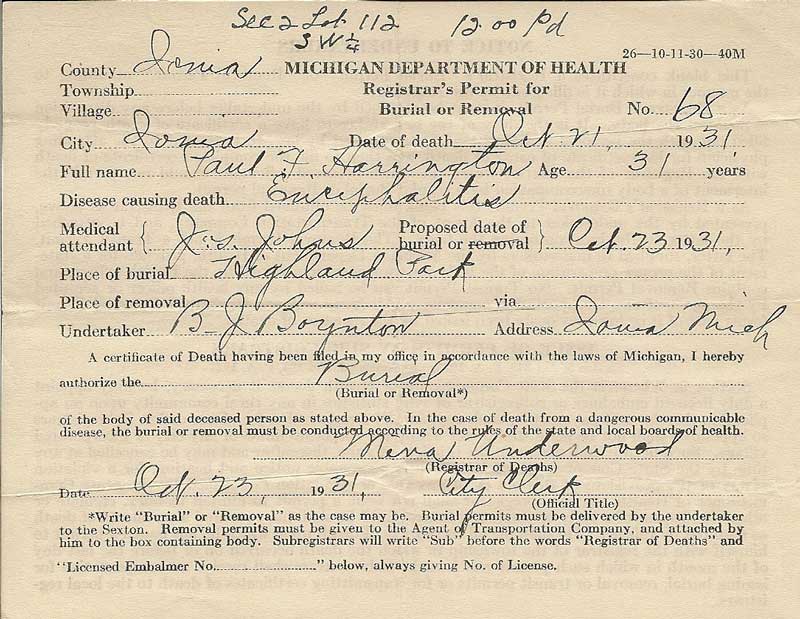 Sec 2 Lot 112 12 00 Pd
S W 1/4
26—10-11-30—40M
County Ionia MICHIGAN DEPARTMENT OF HEALTH
Township Registrar's Permit for
Village Burial or Removal No. 68
City Ionia Date of death Oct 21, 1931
Full name Paul F. Harrington Age 31 years
Disease causing death Encephalitis
Medical attendant { Jas. Johns Proposed date of burial or removal } Oct. 23 1931,
Place of burial Highland Park
Place of removal via
Undertaker B J Boynton Address Ionia Mich
A certificate of Death having been filed in my office in accordance with the laws of Michigan, I hereby
authorize the Burial
(Burial or Removal*)
of the body of said deceased person as stated above. In the case of death from a dangerous communicable
disease, the burial or removal must be conducted according to the rules of the state and local boards of health.
Mina Underwood
(Registrar of Deaths)
Date Oct. 23, 1931, City Clerk
(Official Title)
*Write "Burial" or "Removal" as the case may be. Burial permits must be delivered by the undertaker
to the Sexton. Removal permits must be given to the Agent of Transportation Company, and attached by
him to the box containing body. Subregistrars will write "Sub" before the words "Registrar of Deaths" and
"Licensed Embalmer No. " below, always giving No. of License.